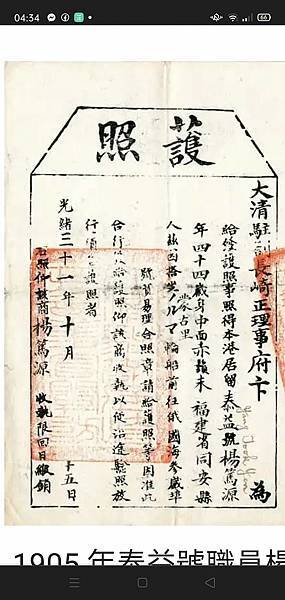 04:34
66
護照
大清駐劄長崎正理事府卞 為
給發護照事照得本港居留泰益號楊篤源
年四十四歲身中面赤鬚未 福建省同安縣
人茲因搭坐 ルマ輪船前往俄國海參崴埠
貿易理合照章請給護照等因准此
合行 給護照仰該商收執以便沿途驗放
行須至護照者
光緒三十一年十月 十五日
右照仰該商楊篤源 收執限回日繳銷
1905 年泰益號職員楊